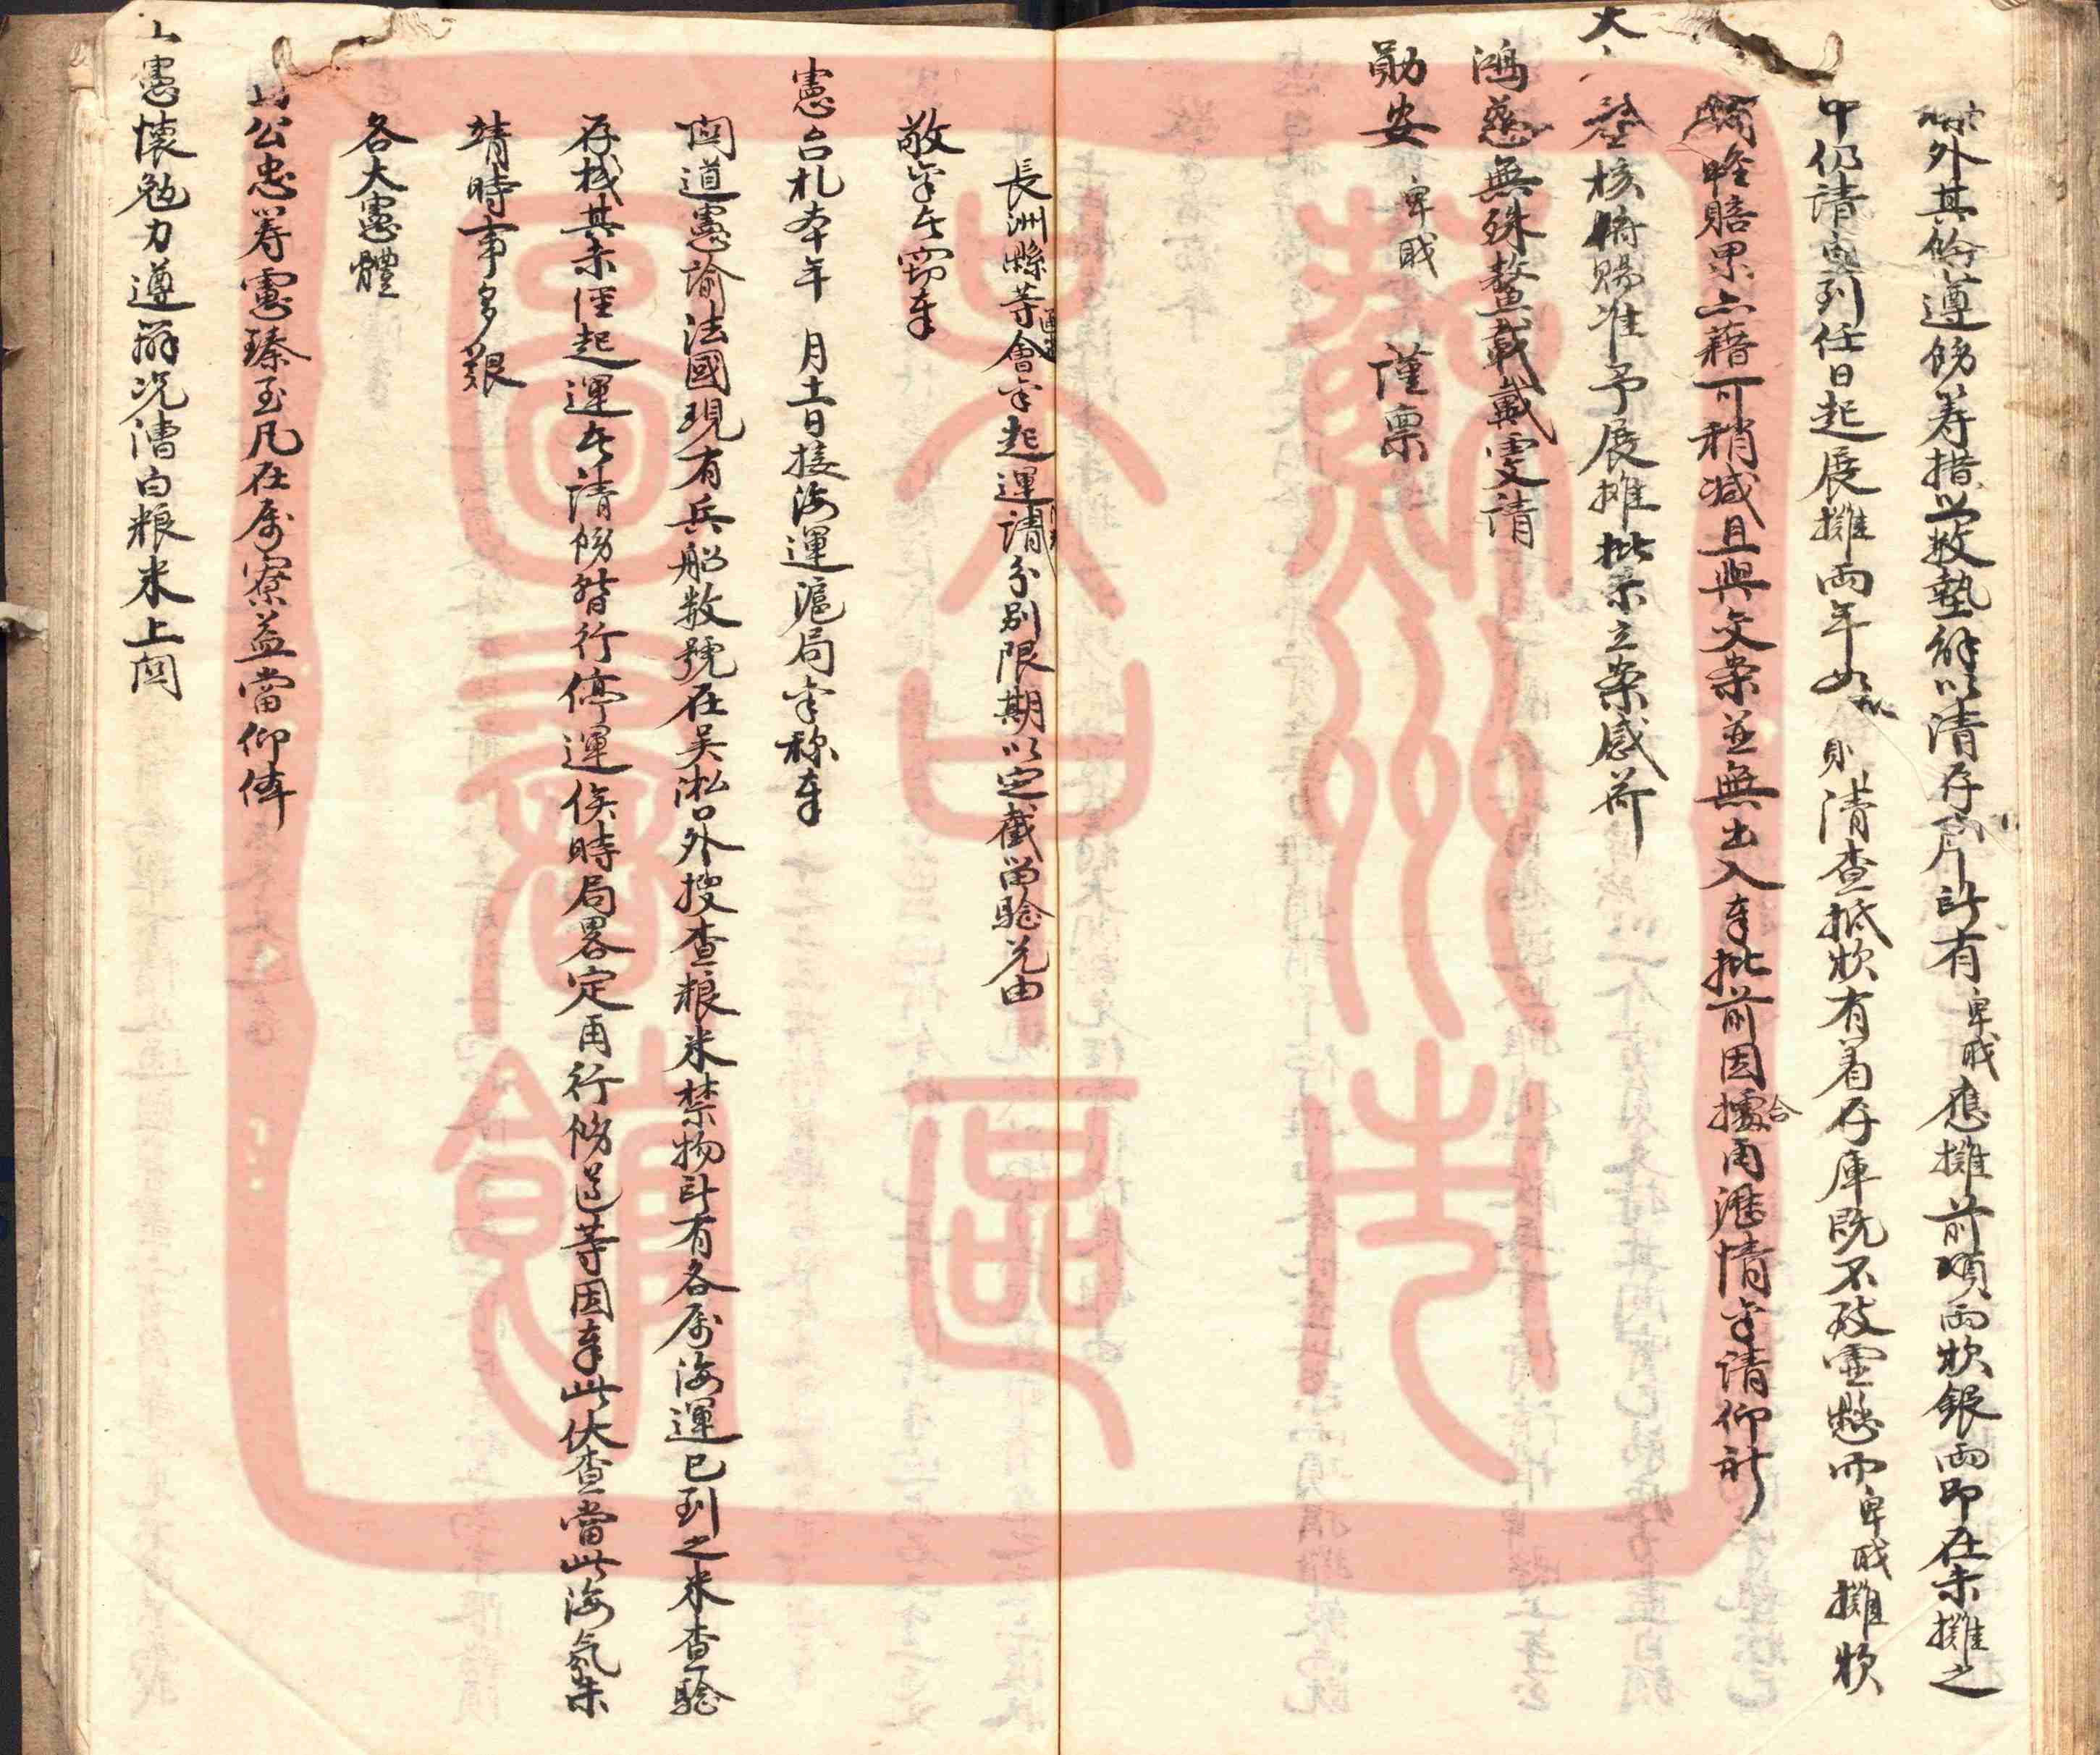 外其餘遵飭籌措並撥墊解以清存原計有卑職應攤前項兩款銀兩即在未攤之
中仍請由到任日起展攤兩年如則清查抵款有着存庫既不致虛懸而卑職攤款
賠累亦藉可稍減且與交案並無出入奉批前因合據再瀝情稟請仰祈
大
登核俯賜准予展攤批示立案感荷
鴻慈無殊鰲戴戴肅請
勛安卑職 謹稟
長洲縣等會稟起運請分別限期以定截留驗兌由
敬稟者竊奉
憲台札奉本年 月十一日接海運滬局稟稱奉
關道憲諭法國現有兵船數號在吳淞口外搜查糧米禁物計有各屬海運已到之米查驗
存棧其未經起運者請飭暫行停運俟時局畧定再行飭送等因奉此伏查當此海氛未
靖時事多艱
各大憲體
國公忠籌慮臻至凡在屬寮益當仰體
上憲懷勉力遵辦況漕白糧米上關
蘇州市
大中區
圖書館